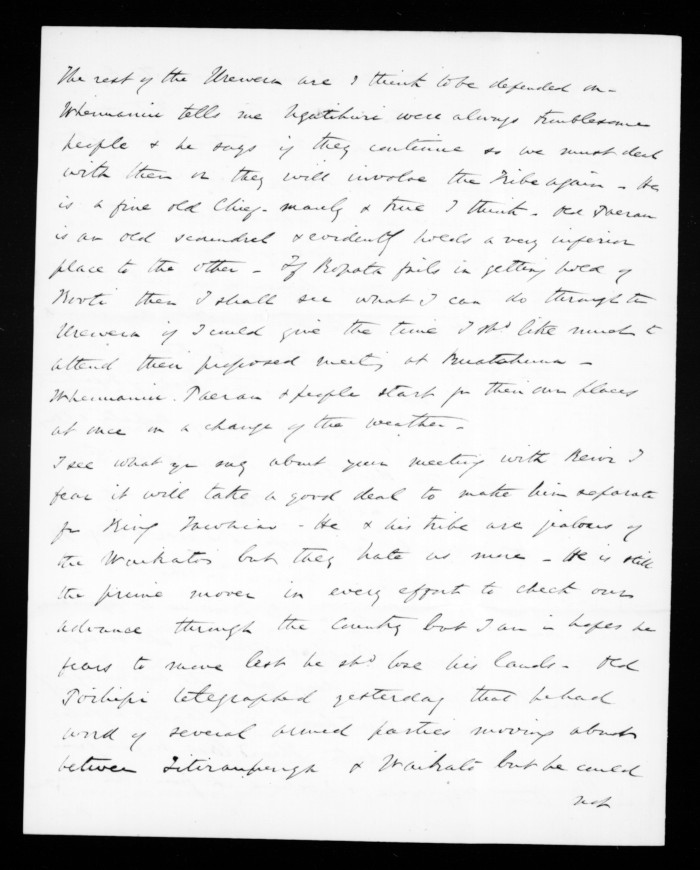 The rest of the Urewera are I think to be depended on -
Whenuanui tells me Ngatihuri were always troublesome
people & he says if they continue so we must deal
with them or they will involve the Tribe again - He
is a fine old Chief - manly & true I think - Old Paerau
is an old scoundrel & evidently holds a very inferior
place to the other - If Ropata fails in getting hold of
Kooti then I shall see what I can do through the
Urewera if I could give the time I shd like much to
attend their proposed meeting at Ruatahuna -
Whenuanui. Paerau & people start for their own places
at once on a change of the weather -
I see what you say about your meeting with Rewi I
fear it will take a good deal to make him separate
fr King Tawhiao - He & his tribe are jealous of
the Waikatos but they hate us more - He is still
the prime mover in every effort to check our
advance through the Country but I am in hopes he
fears to move lest he shd lose his lands - Old
Poihipi telegraphed yesterday that he had
word of several armed parties moving about
between Titiraupenga & Waikato but he could
not